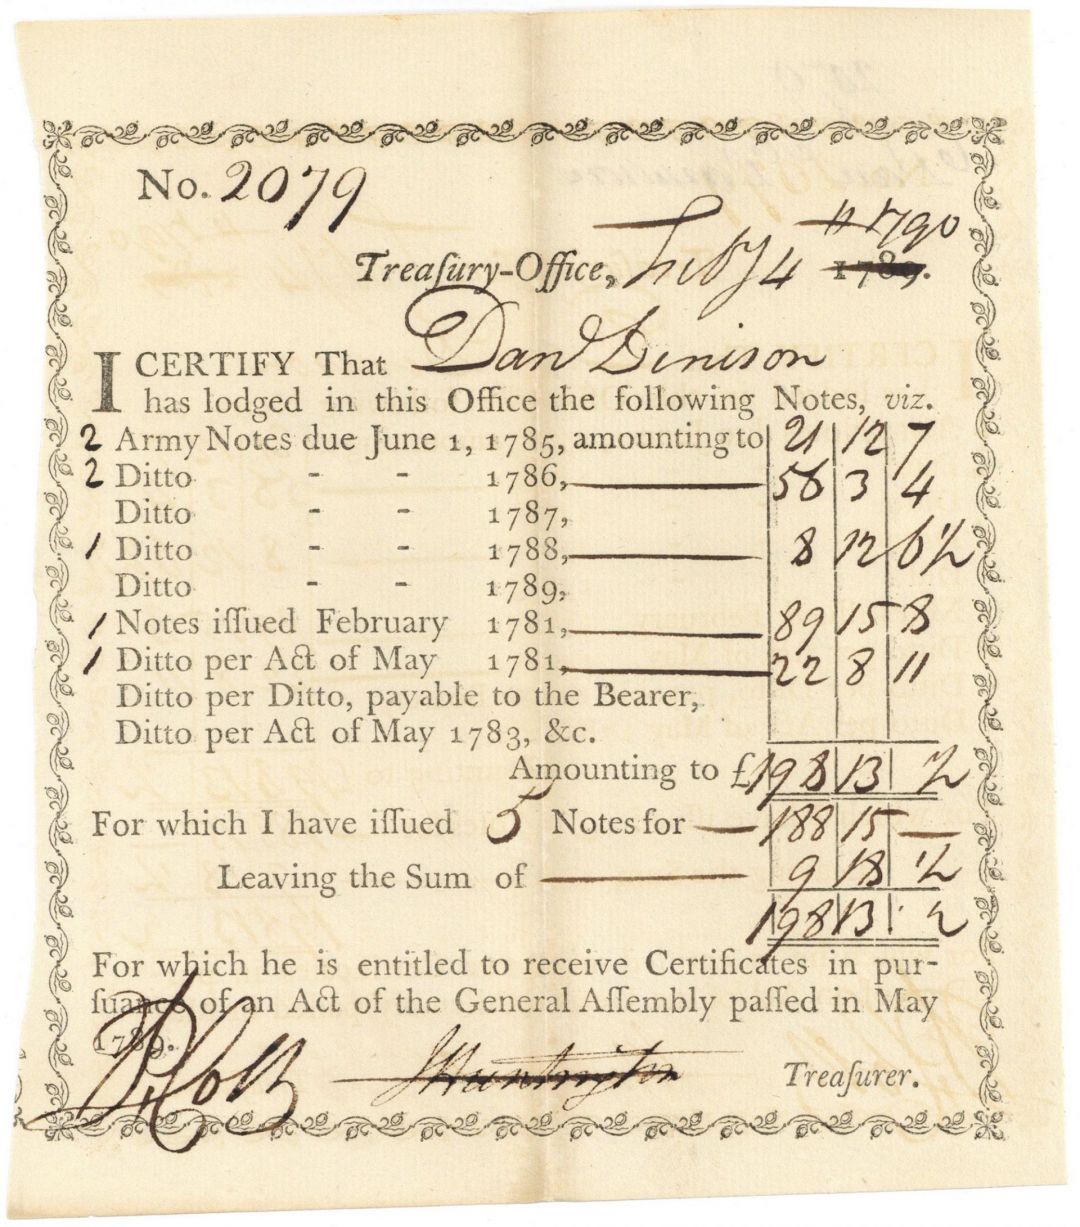 No. 2079
Treaſury-Office, Feby 4 1789. 1790
I CERTIFY That Danl Denison
has lodged in this Office the following Notes, viz.
2 Army Notes due June 1, 1785, amounting to 21 12 7
2 Ditto - - 1786, 56 3 4
Ditto - - 1787,
1 Ditto - - 1788, 8 12 6½
Ditto - - 1789,
1 Notes iſſued February 1781, 89 15 8
1 Ditto per Act of May 1781, 22 8 11
Ditto per Ditto, payable to the Bearer,
Ditto per Act of May 1783, &c.
Amounting to £ 198 13 ½
For which I have iſſued 5 Notes for — 188 15 —
Leaving the Sum of 9 18 ½
198 13 ½
For which he is entitled to receive Certificates in pur-
ſuance of an Act of the General Aſſembly paſſed in May
1789.
J Huntington Treaſurer.